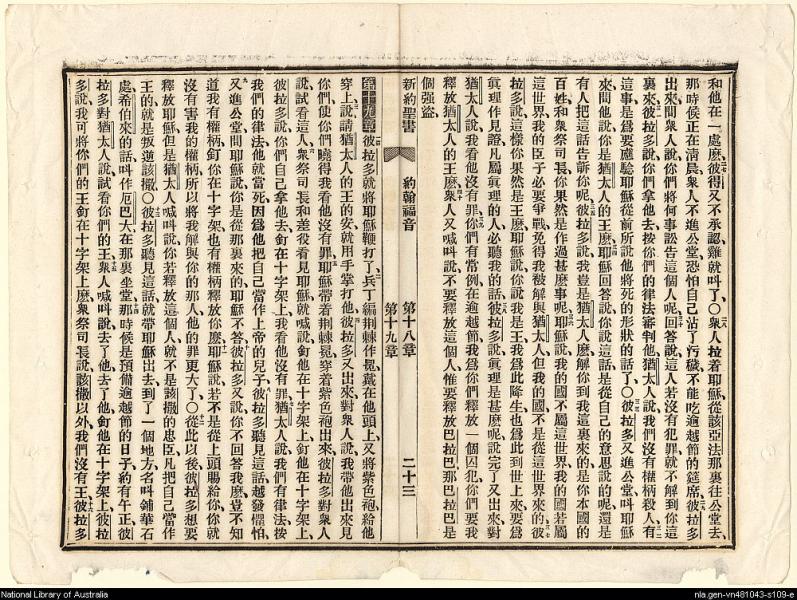 和他在一處麽彼得又不承認雞就叫了〇衆人拉着耶穌從該亞法那裏往公堂去
那時候正在淸晨衆人不進公堂恐怕自己沾了污穢不能吃逾越節的筵席彼拉多
出來問衆人說你們將何事訟告這個人呢回答說這人若沒有犯罪就不解到你這
裏來彼拉多說你們拿他去按你們的律法審判他猶太人說我們沒有權柄殺人有
這事是爲要應驗耶穌從前所說他將死的形狀的話了〇彼拉多又進公堂叫耶穌
來問他說你是猶太人的王麽耶穌回答說你說這話是從自己的意思說的呢還是
有人把這話告訴你呢彼拉多說我豈是猶太人麽解你到我這裏來的是你本國的
百姓和衆祭司長你果然是作過甚麽事呢耶穌說我的國不屬這世界我的國若屬
這世界我的臣子必要爭戰免得我被解與猶太人但我的國不是從這世界來的彼
拉多說這樣你果然是王麽耶穌說你說我是王我爲此降生也爲此到世上來要爲
眞理作見證凡屬眞理的人必聽我的話彼拉多說眞理是甚麽呢說完了又出來對
猶太人說我看他沒有罪你們有常例在逾越節我爲你們釋放一個囚犯你們要我
釋放猶太人的王麽衆人又喊叫說不要釋放這個人惟要釋放巴拉巴那巴拉巴是
個强盜
新約聖書
約翰福音
第十八章
第十九章
二十三
第十九章彼拉多就將耶穌鞭打了兵丁編荆棘作冕戴在他頭上又將紫色袍給他
穿上說請猶太人的王的安就用手掌打他彼拉多又出來對衆人說我帶他出來見
你們使你們曉得我看他沒有罪耶穌帶着荆棘冕穿着紫色袍出來彼拉多對衆人
說試看這人衆祭司長和差役看見耶穌就喊說釘他在十字架上釘他在十字架上
彼拉多說你們自己拿他去釘在十字架上我看他沒有罪猶太人說我們有律法按
我們的律法他就當死因爲他把自己當作上帝的兒子彼拉多聽見這話越發懼怕
又進公堂問耶穌說你是從那裏來的耶穌不答彼拉多又說你不回答我麽豈不知
道我有權柄釘你在十字架也有權柄釋放你麽耶穌說若不是從上頭賜給你你就
沒有害我的權柄所以將我解與你的那人他的罪更大了〇從此以後彼拉多想要
釋放耶穌但是猶太人喊叫說你若釋放這個人就不是該撒的忠臣凡把自己當作
王的就是叛逆該撒〇彼拉多聽見這話就帶耶穌出去到了一個地方名叫鋪華石
處希伯來的話叫作厄巴大在那裏坐堂那時候是預備逾越節的日子約有午正彼
拉多對猶太人說試看你們的王衆人喊叫說去了他去了他釘他在十字架上彼拉
多說我可將你們的王釘在十字架上麽衆祭司長說該撒以外我們沒有王彼拉多
National Library of Australia
nla.gen-vn481043-s109-e